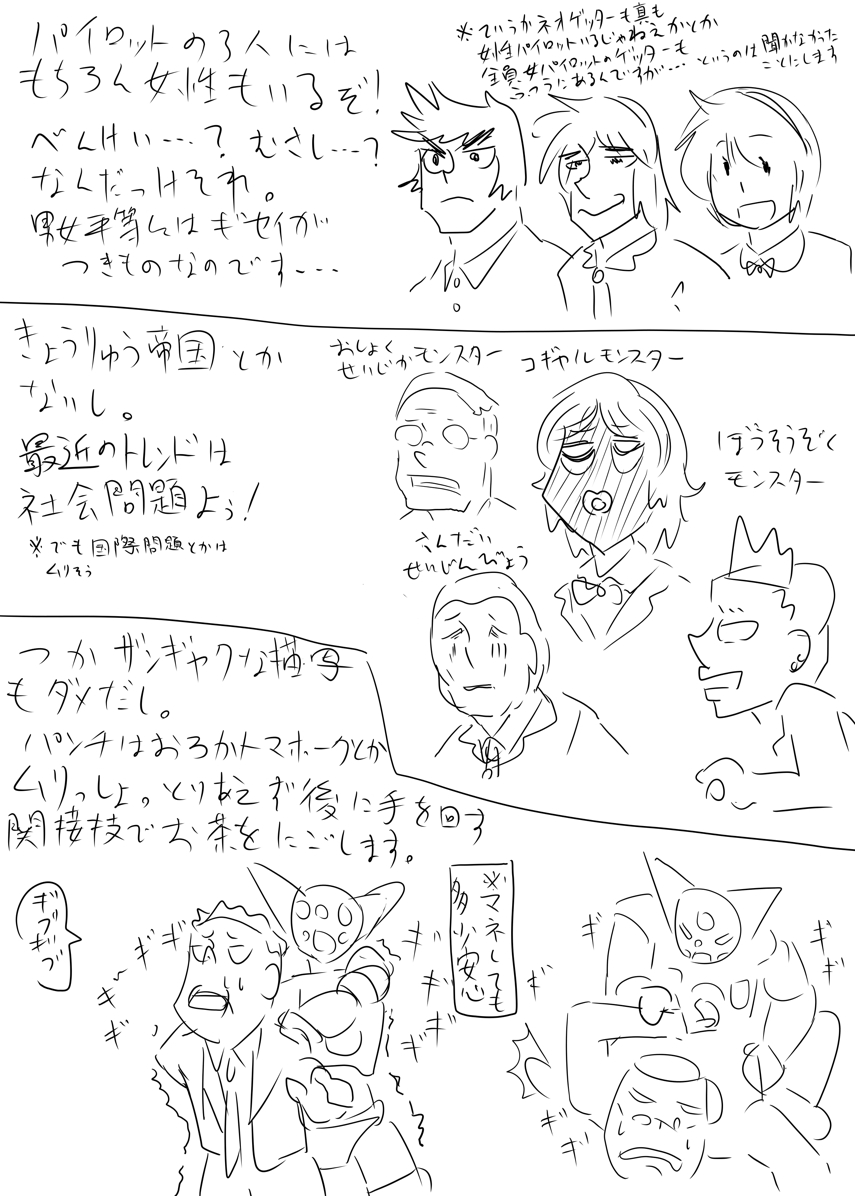 パイロットの3人には
もちろん女性もいるぞ！
べんけい…？むさし…？
なんだっけそれ。
男女平等にはギセイが
つきものなのです…
※ていうかネオゲッターも真も
女性パイロットいるじゃねえかとか
全員女パイロットのゲッターも
ふつうにあるんですが…というのは聞かなかった
ことにします
きょうりゅう帝国とか
ないし。
最近のトレンドは
社会問題よぅ！
※でも国際問題とかは
ムリそう
おしょく
せいじかモンスター
コギャルモンスター
さんだい
せいじんびょう
ぼうそうぞく
モンスター
つかザンギャクな描写
もダメだし。
パンチはおろかトマホークとか
ムリっしょ。とりあえず後に手を回す
関接技でお茶をにごします。
ギブギブ
ギギ
ギ
ギ
※マネしても
多少安心
ギ
ギ
ギ
ギ
ギ
ギ
ギ
ギ
ギ